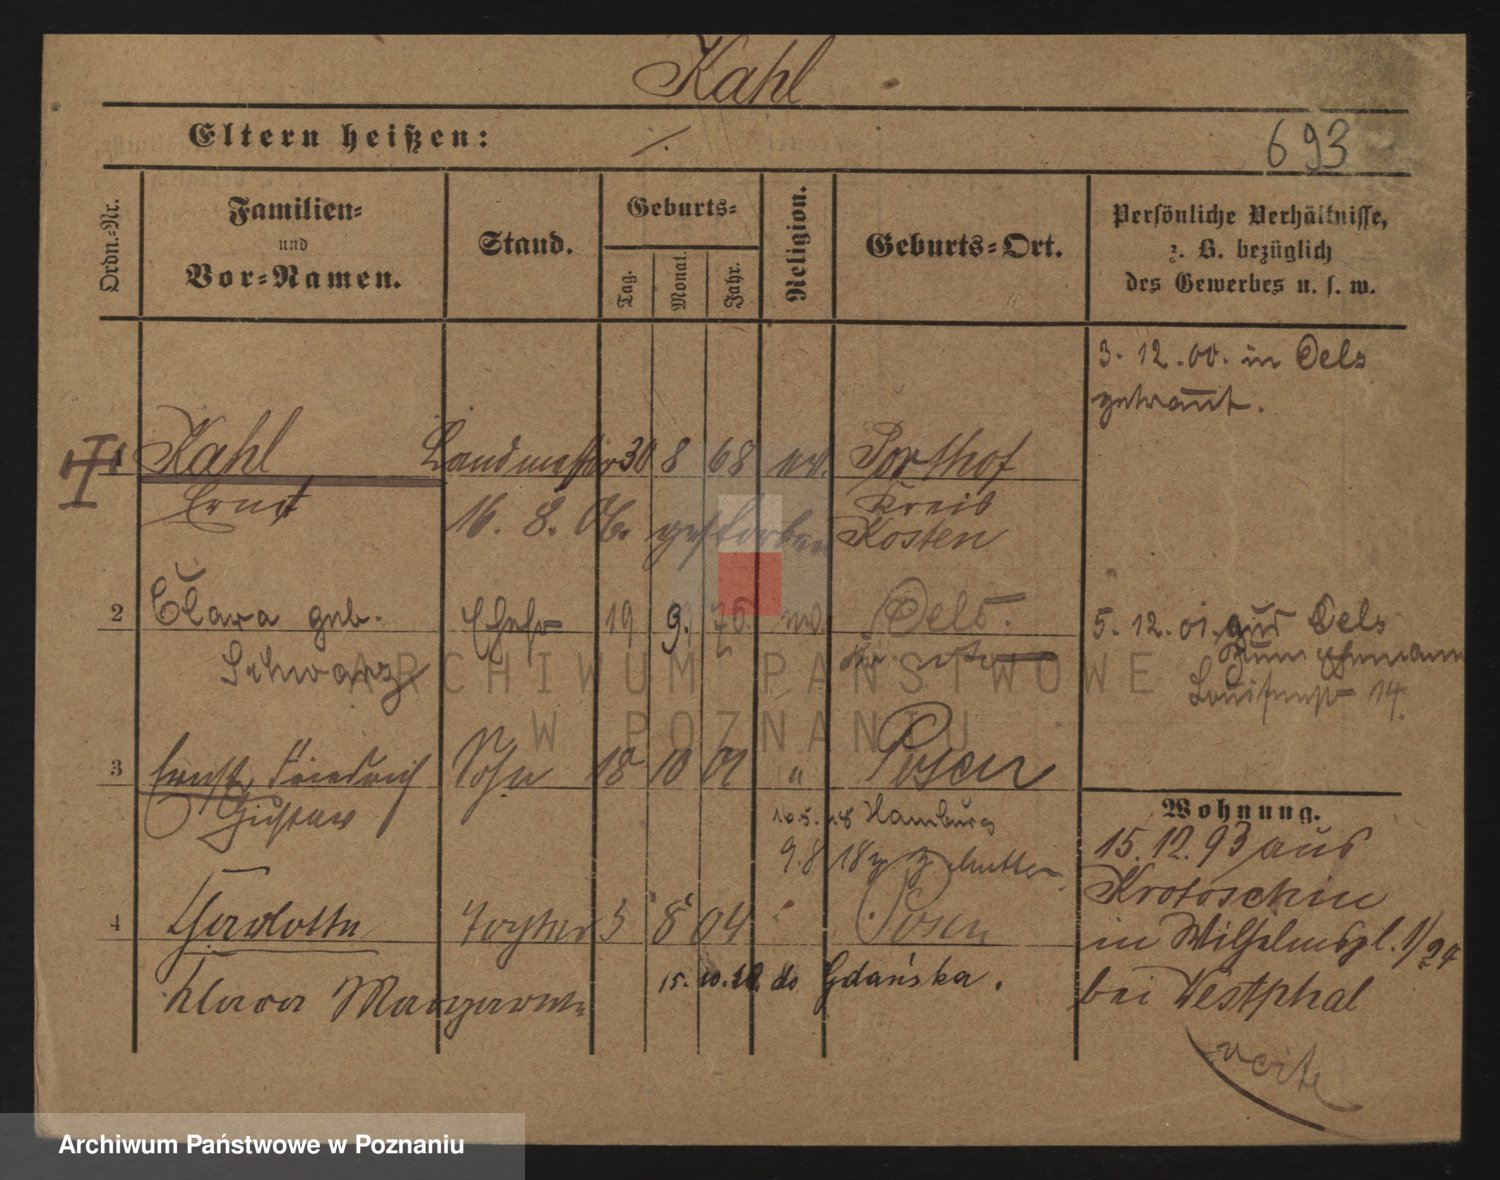 Kahl
Eltern heißen: ./.
693
Ordn.-Nr.
Familien-
und
Vor-Namen.
Stand.
Geburts-
Tag.
Monat.
Jahr.
Religion.
Geburts-Ort.
Persönliche Verhältnisse,
z. B. bezüglich
des Gewerbes u. s. w.
3. 12. 00. in Oels
getraut.
1 Kahl Landmesser 30 8 68 ev. Porthof
Ernst 16. 8. 06. gestorben Kreis
Kosten
2 Clara geb. Ehefr 19 9. 76. ev. Oels.
Schwarz
5. 12. 01. aus Oels
zum Ehemann
Louisenstr 14.
3 Ernst, Friedrich Sohn 18 10 01 " Posen
Gustav
16.5. 18 Hamburg
9.8 18 z. Mutter
4 Charlotte Tochter 3 8 04 " Posen
Klara Margarete 15. 10. do Gdańska.
Wohnung.
15. 12. 93 aus
Krotoschin
in Wilhelmspl. 1/24
bei Westphal
ARCHIWUM PAŃSTWOWE
W POZNANIU
Archiwum Państwowe w Poznaniu